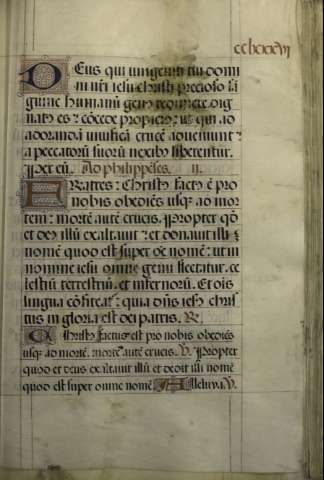 cclxxxvi
DEus qui unigeniti tui domi
ni nr̄i iesu christi precioso sā
guine humanū genꝰ redimere dig
natꝰ es : cōcede propiciꝰ : ut qui ad
adorandā uiuificā crucē adueniunt :
a peccatorū suorū nexibꝰ liberentur.
Per eū. Ad philippēses. ii.
FRatres : Christꝰ factꝰ ē pro
nobis obediēs usqꝫ ad mor
tem : mortē autē crucis. Propter qd̄
et deꝰ illū exaltauit : et donauit illi
nomē quod est super oē nomē : ut in
nomine iesu omne genu flectatur. ce
lestiū terrestriū et infernorū. Et oīs
lingua cōfiteatꝰ : quia dn̄s iesꝰ chris
tus in gloria est dei patris. R.
Christꝰ factus est pro nobis obediēs
usqꝫ ad mortē. mortē autē crucis. V. Propter
quod et deus exaltauit illū et dedit illi nomē
quod est super omne nomē. Alleluia. V.